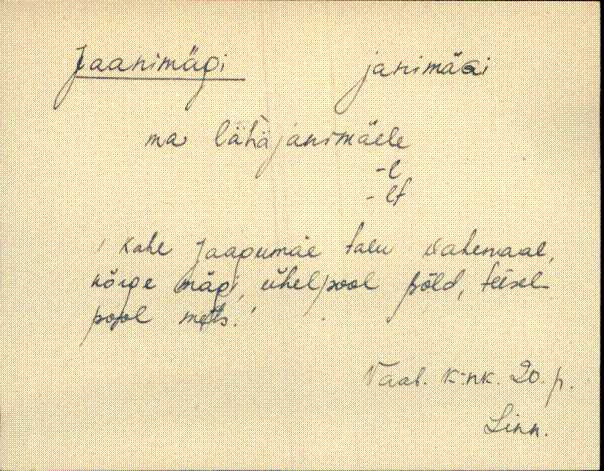 Jaanimägi janimäGi
ma lähä janimäele
-l
-lt
'Kahe Jaagumäe talu vahemaal,
kõrge mägi, ühelpool põld, teisel-
pool mets.'
Vaab. k-nk. 20. p.
Linn.